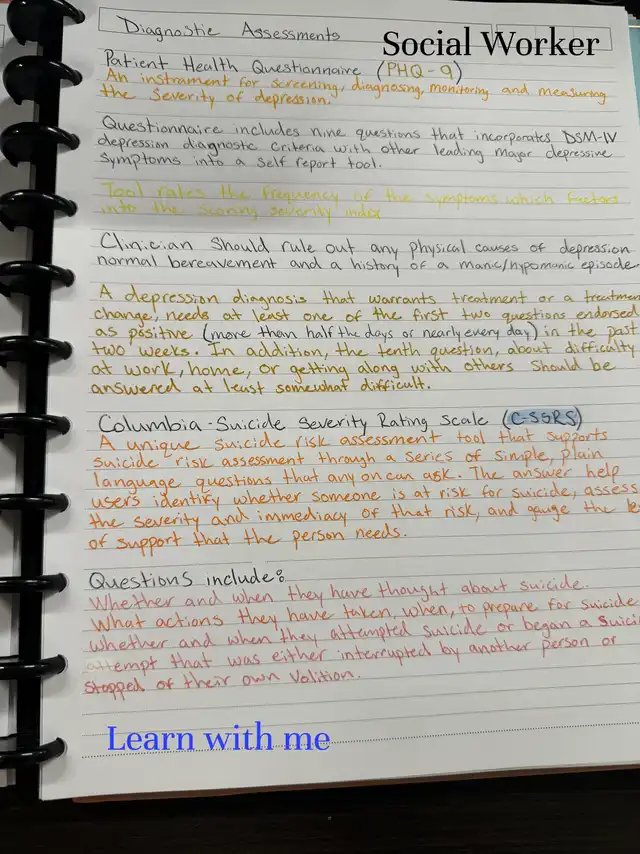 Diagnostic Assessments
Social Worker
Patient Health Questionnaire (PHQ-9)
An instrument for screening, diagnosing, monitoring and measuring
the severity of depression.
Questionnaire includes nine questions that incorporates DSM-IV
depression diagnostic criteria with other leading major depressive
symptoms into a self report tool.
Tool rates the frequency of the symptoms which factors
into the scoring severity index
Clinician should rule out any physical causes of depression
normal bereavement and a history of a manic/hypomanic episode
A depression diagnosis that warrants treatment or a treatment
change, needs at least one of the first two questions endorsed
as positive (more than half the days or nearly every day) in the past
two weeks. In addition, the tenth question, about difficulty
at work, home, or getting along with others should be
answered at least somewhat difficult.
Columbia-Suicide Severity Rating Scale (C-SSRS)
A unique suicide risk assessment tool that supports
suicide risk assessment through a series of simple, plain
language questions that any on can ask. The answer help
users identify whether someone is at risk for suicide, assess
the severity and immediacy of that risk, and gauge the le
of support that the person needs.
Questions include:
Whether and when they have thought about suicide.
What actions they have taken, when, to prepare for suicide
Whether and when they attempted suicide or began a suici
attempt that was either interrupted by another person or
stopped of their own volition.
Learn with me